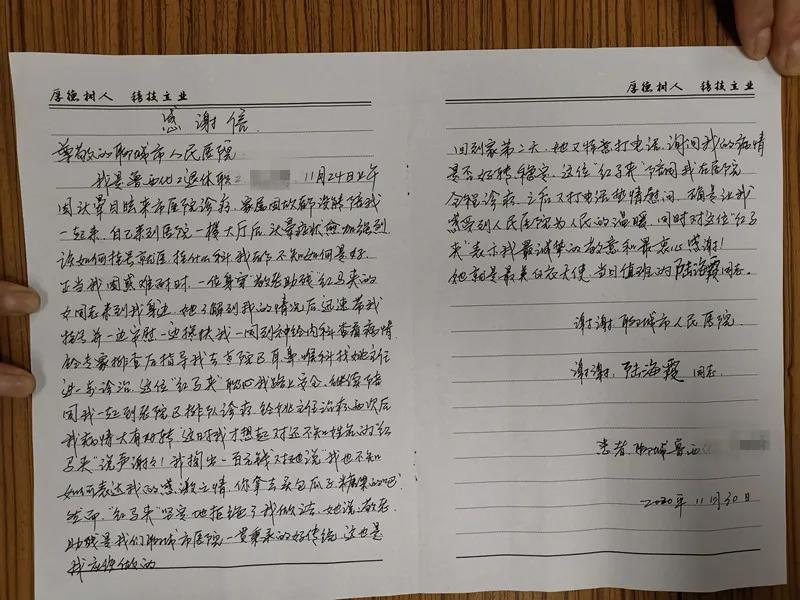 厚德树人 精技立业
感谢信
尊敬的聊城市人民医院
我是鲁西化工退休职工 11月24日上午
因头晕目眩来市医院诊病,家属因故都没能陪我
一起来,自己来到医院一楼大厅后,头晕症状愈加强烈
该如何挂号就医,挂什么科,我都不知如何是好。
正当我困惑难耐时,一位身穿"敬老助残"红马夹的
女同志来到我身边,她了解到我的情况后迅速带我
挂号并一边安慰一边搀扶我一同到神经内科查看病情
经专家排查后指导我去东院区耳鼻喉科找姚主任
进一步诊治,这位"红马夹"担心我路上安全,继续陪
同我一起到东院区排队诊病,经姚主任诊疗两次后
我病情大有好转,这时我才想起对还不知姓名的"红
马夹"说声谢谢!我掏出一百元钱对她说"我也不知
如何表达我的感激之情,你拿去买包瓜子糖果的吧"
然而,"红马夹"坚定地拒绝了我做法,她说,敬老
助残是我们聊城市医院一贯秉承的好传统,这也是
我应该做的
厚德树人 精技立业
回到家第二天,她又特意打电话,询问我的病情
是否好转稳定,这位"红马夹"陪同我在医院
全程诊病,之后又打电话热情慰问,确是让我
感受到人民医院为人民的温暖,同时对这位"红马
夹"表示我最诚挚的敬意和最衷心感谢!
她就是最美白衣天使,当日值班的陆海霞同志。
谢谢聊城市人民医院
谢谢,陆海霞同志
患者,聊城鲁西化
2020年11月30日